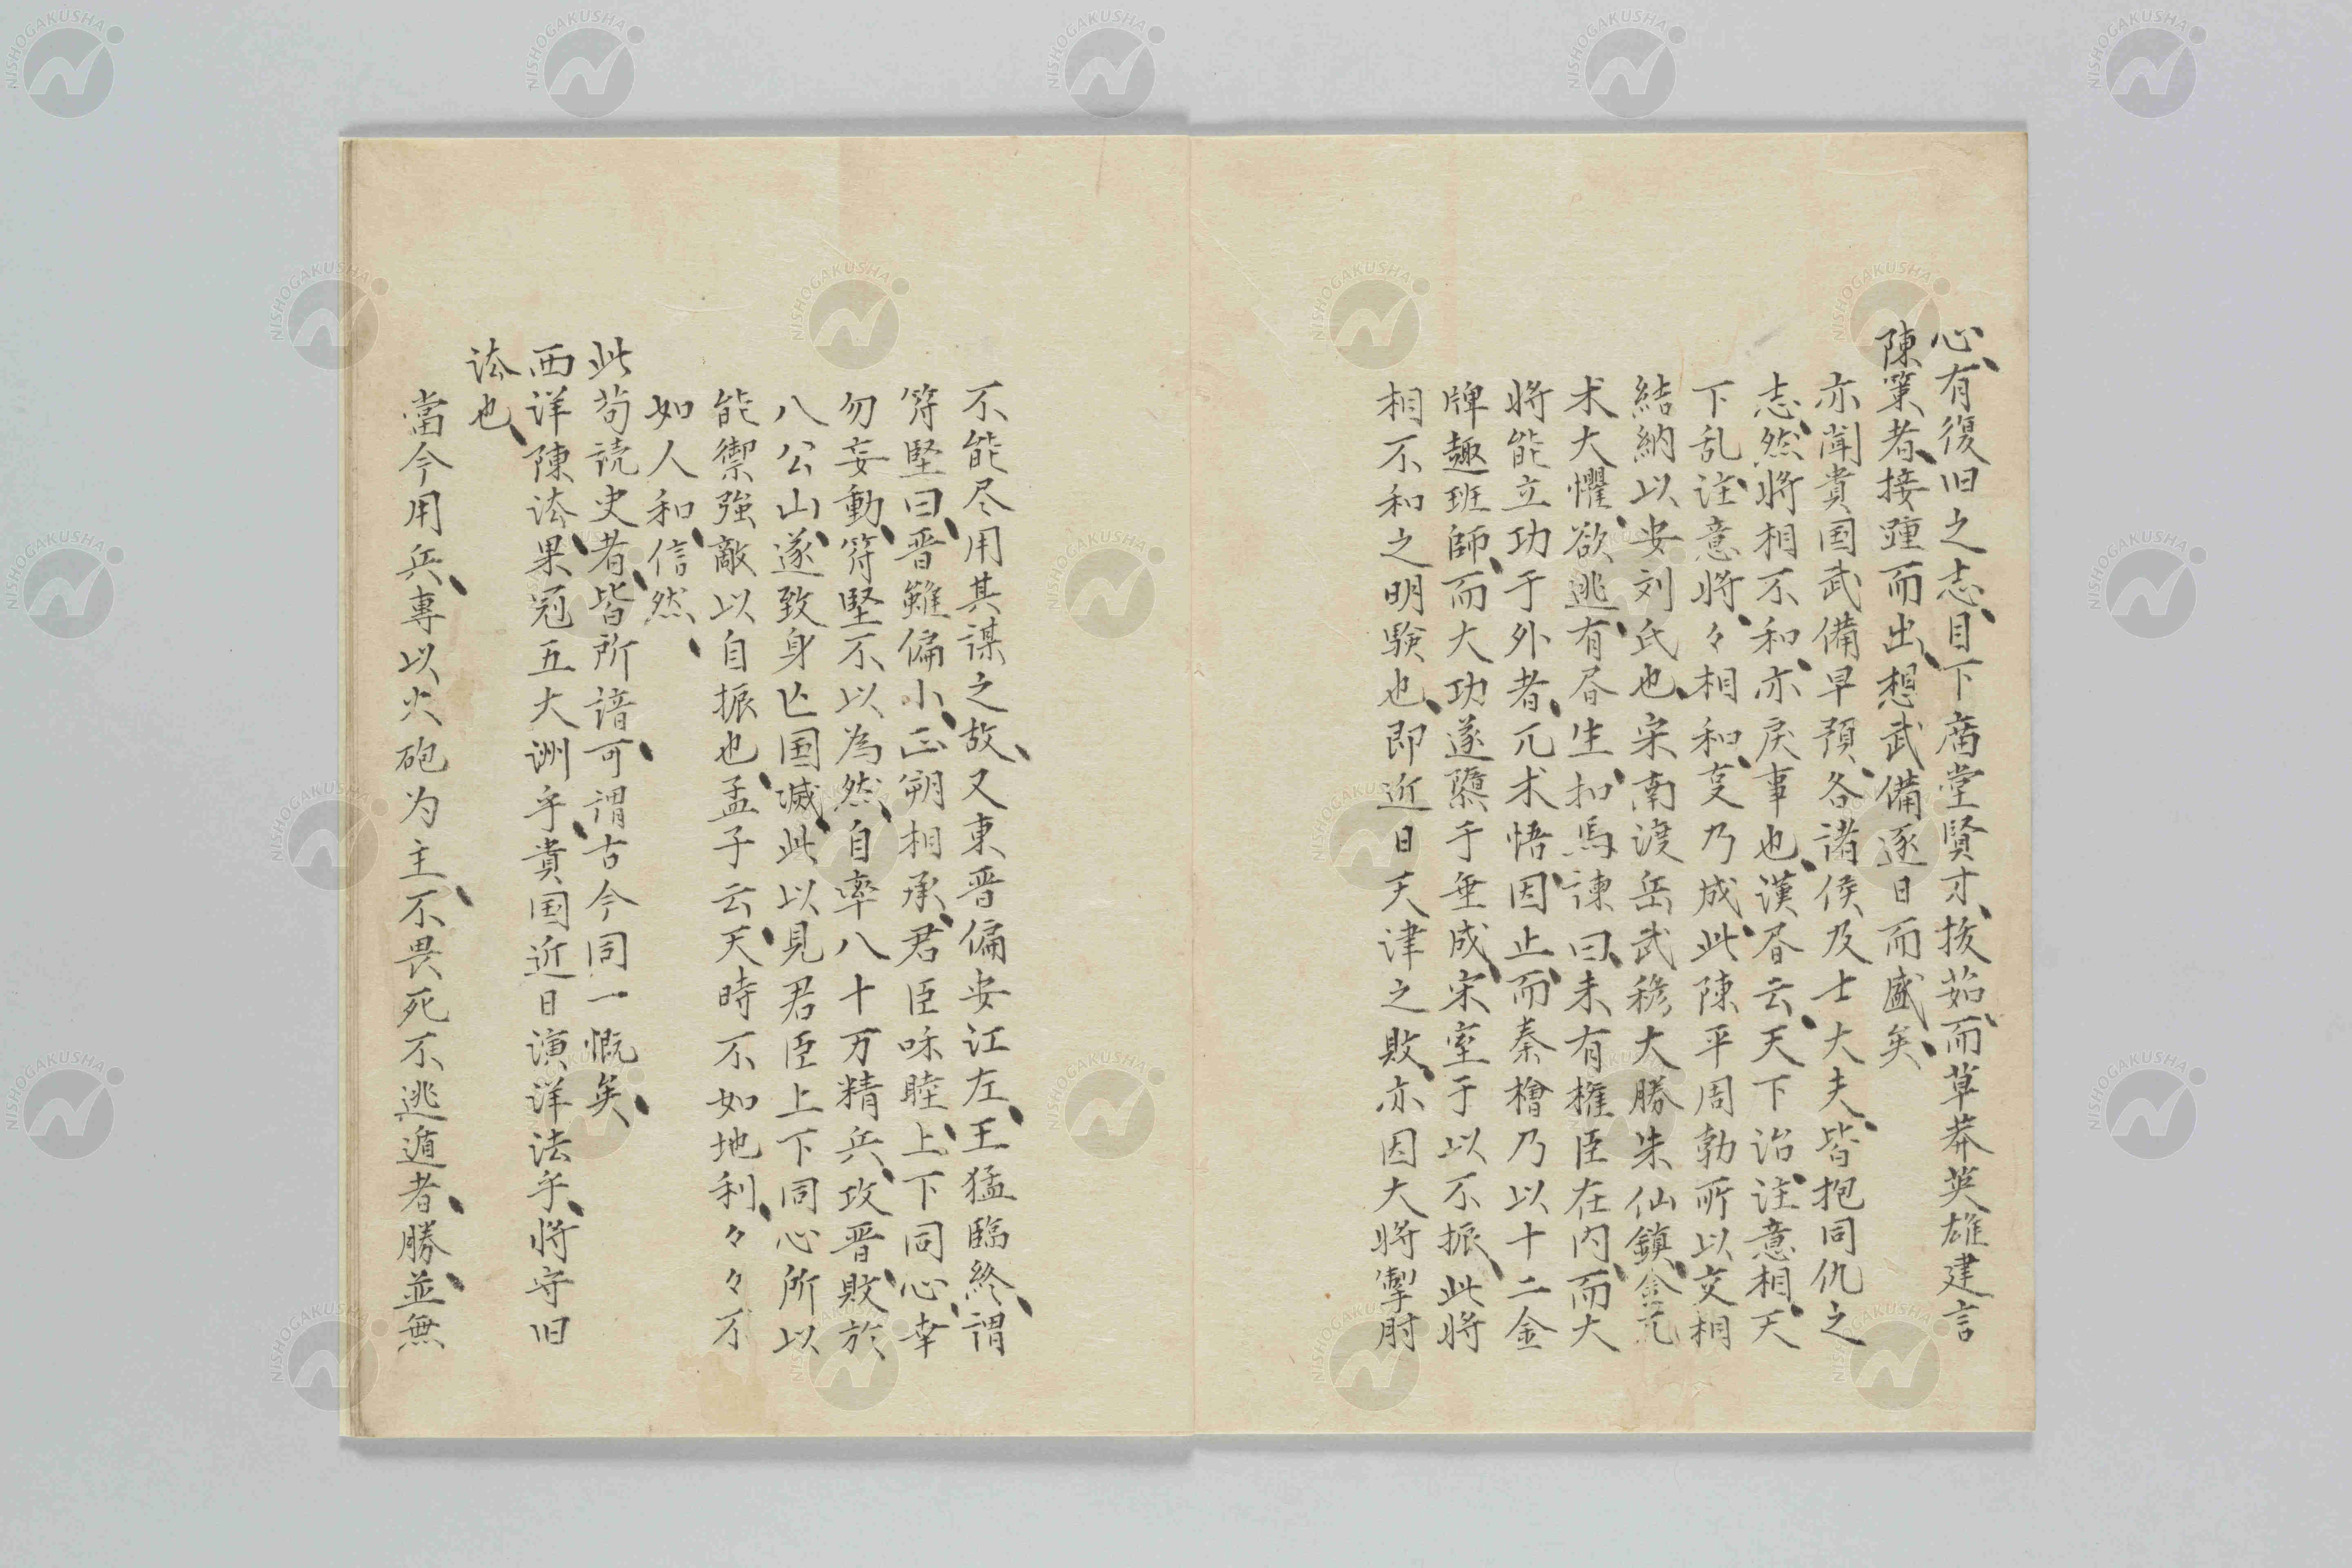 心、有復旧之志、目下廟堂賢才、拔茹、而草莽英雄建言
陳策者、接踵而出、想武備逐日而盛矣、
亦聞貴国武備早預、各諸侯及士大夫、皆抱同仇之
志、然将相不和、亦戾事也、漢書云、天下治、注意相、天
下乱、注意将、々相和、変乃成、此陳平周勃所以交相
結納以安刘氏也、宋南渡岳武穆大勝朱仙鎮、金兀
朮大懼、欲逃、有書生扣馬諫曰、未有権臣在内、而大
将能立功于外者、兀朮悟、因止、而秦檜乃以十二金
牌趣班師、而大功遂隳于垂成、宋室于以不振、此将
相不和之明験也、即近日天津之敗、亦因大将掣肘
不能尽用其謀之故、又東晋偏安江左、王猛臨終、謂
符堅曰、晋雖偏小、正朔相承、君臣咊睦、上下同心、幸
勿妄動、符堅不以為然、自率八十万精兵、攻晋、敗於
八公山、遂致身亡国滅、此以見君臣上下同心所以
能禦強敵以自振也、孟子云、天時不如地利、々々不
如人和、信然、
此苟読史者、皆所諳、可謂古今同一慨矣、
西洋陳法、果冠五大洲乎、貴国近日演洋法乎、将守旧
法也、
當今用兵、專以火砲为主、不畏死不逃遁者、勝、並無